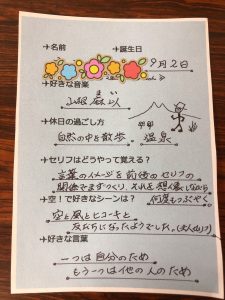 →名前 →誕生日
9月2日
→好きな音楽
山根麻以
まい
→休日の過ごし方
自然の中を散歩 温泉
→セリフはどうやって覚える?
言葉のイメージを前後のセリフの
関係でまずつくり、それを想像しながら
何度もつぶやく
→空!で好きなシーンは?
空と風とヒコーキと
友だちになったようでした。
→好きな言葉
一つは自分のため
もう一つは他の人のため